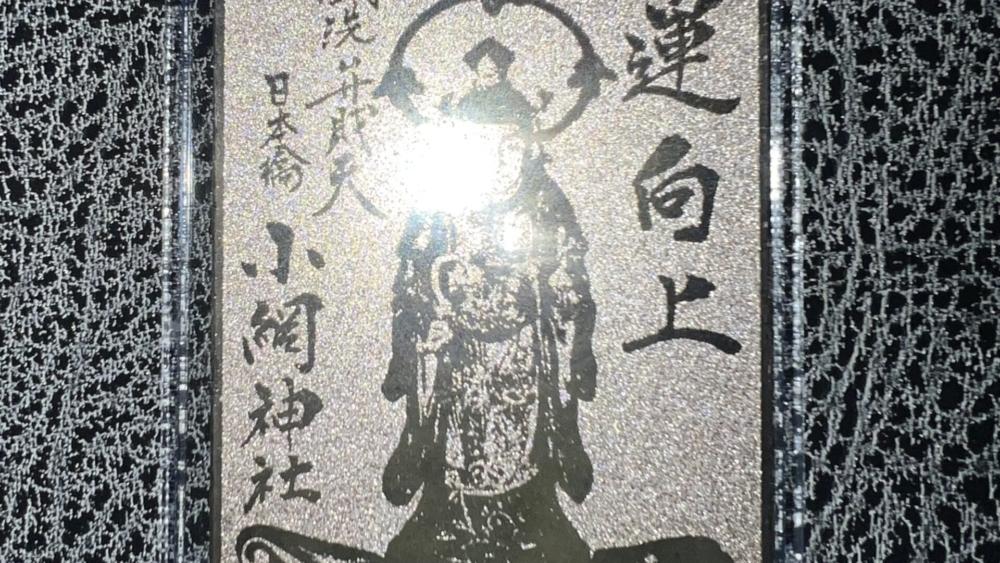 運向上
洗弁財天
日本橋
小網神社